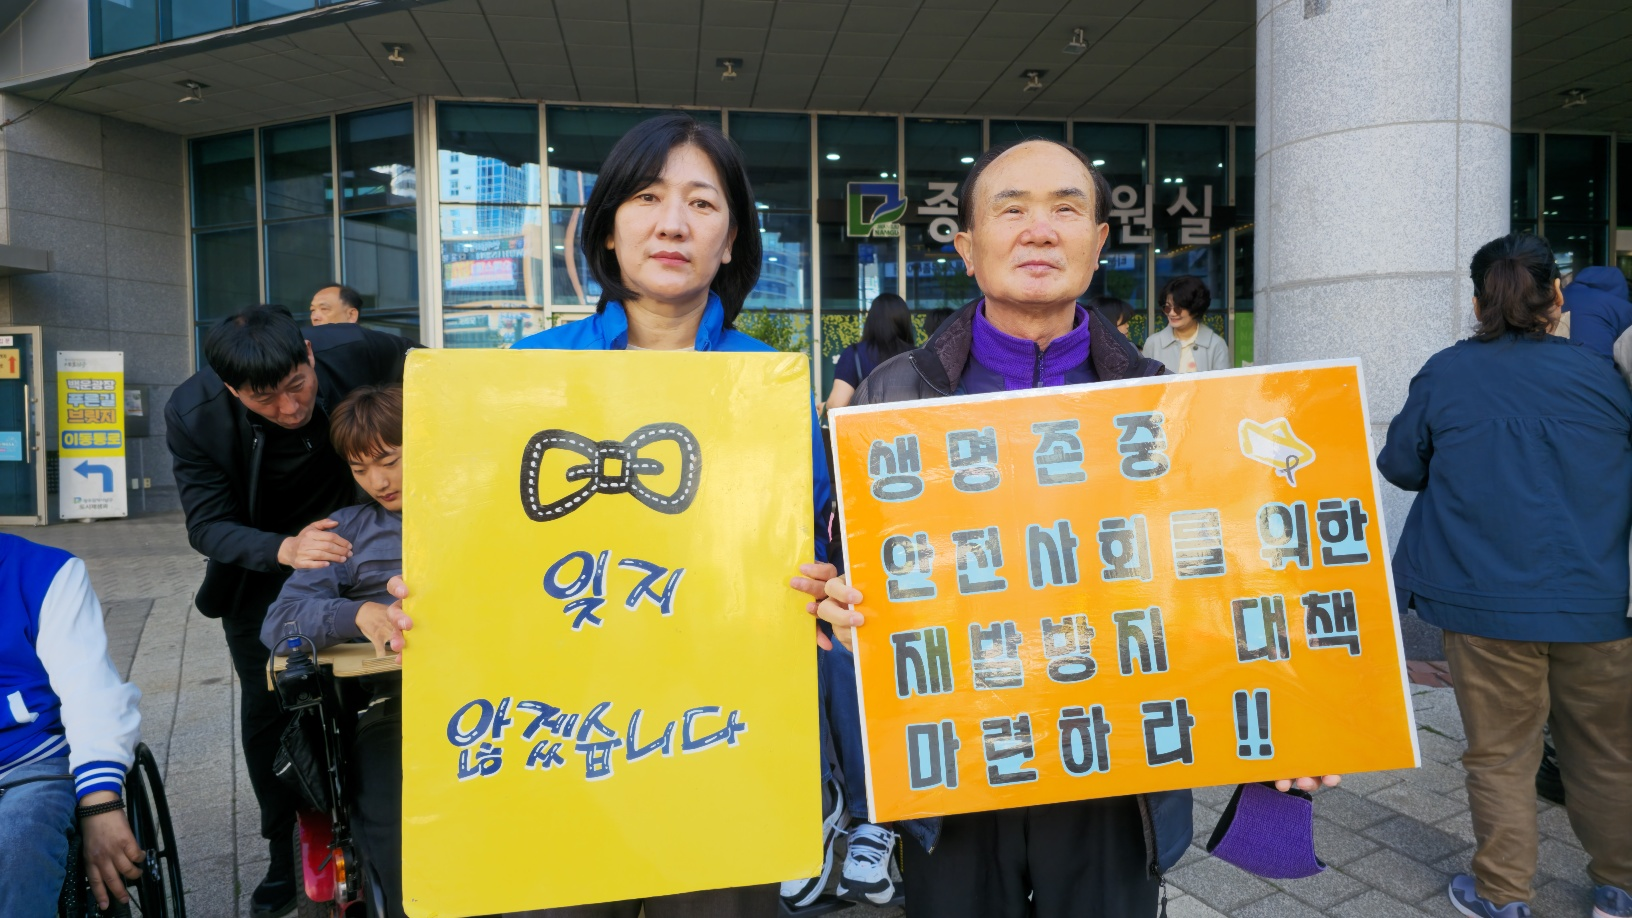 잊지
않겠습니다
생명존중
안전사회를 위한
재발방지 대책
마련하라!!
백운광장
푸른길
브릿지
이동통로